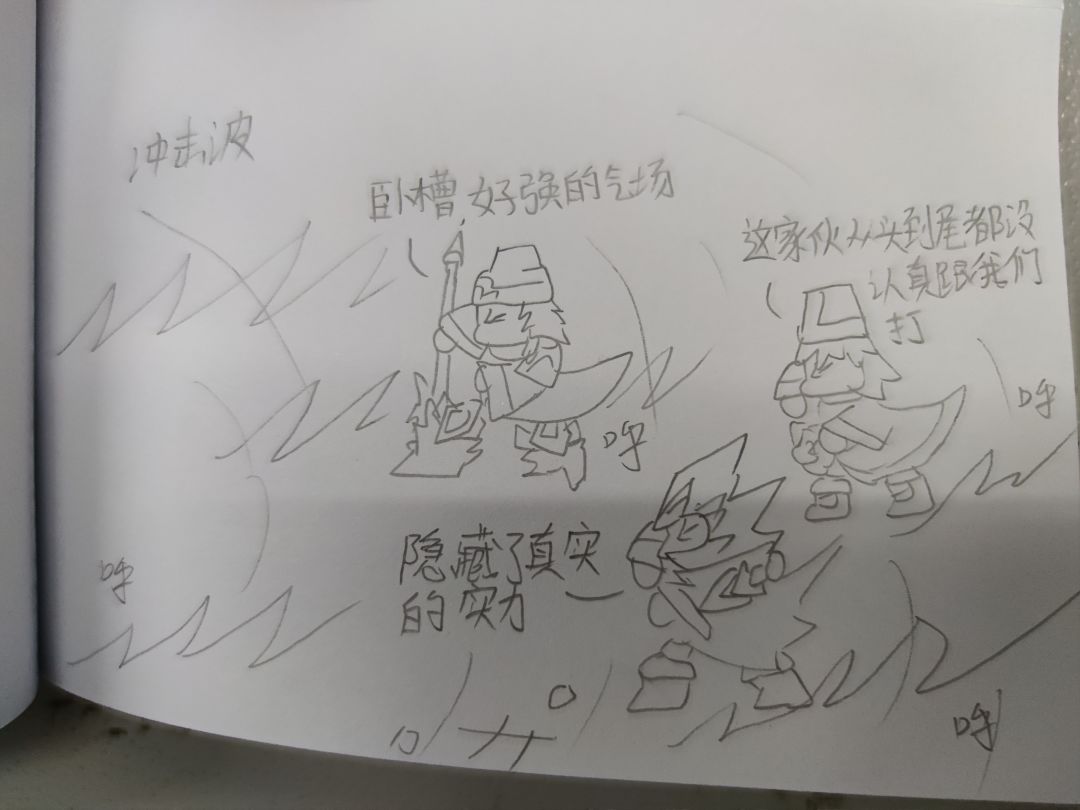 冲击波
卧槽,好强的气场
这家伙从头到尾都没
认真跟我们
打
呼
呼
隐藏了真实
的实力
呼
呼